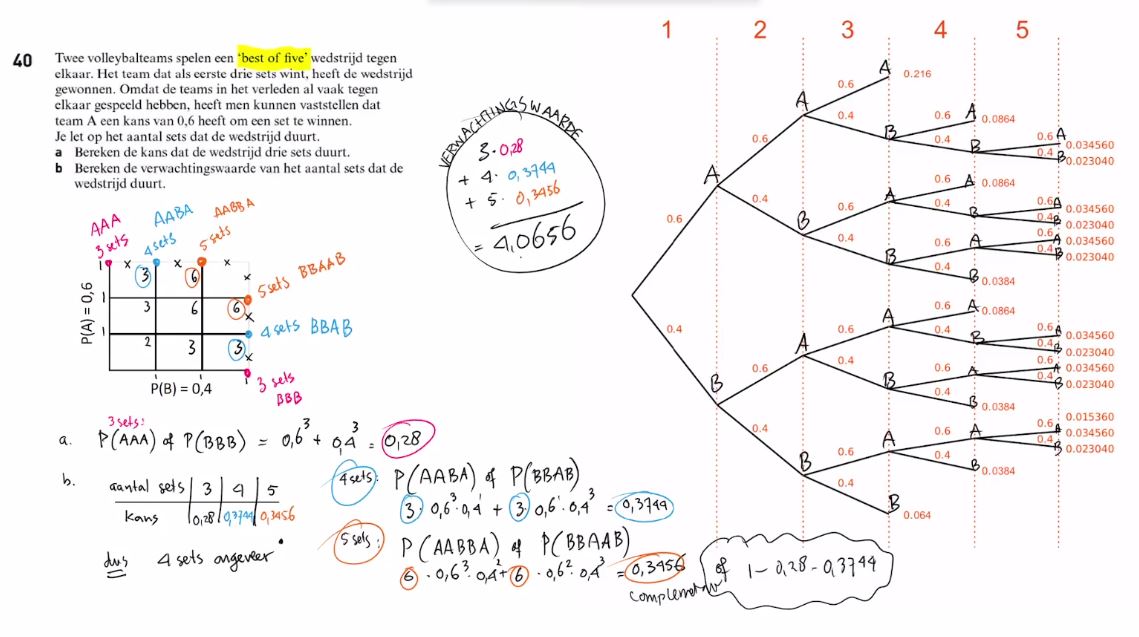 40 Twee volleybalteams spelen een 'best of five' wedstrijd tegen
elkaar. Het team dat als eerste drie sets wint, heeft de wedstrijd
gewonnen. Omdat de teams in het verleden al vaak tegen
elkaar gespeeld hebben, heeft men kunnen vaststellen dat
team A een kans van 0,6 heeft om een set te winnen.
Je let op het aantal sets dat de wedstrijd duurt.
a Bereken de kans dat de wedstrijd drie sets duurt.
b Bereken de verwachtingswaarde van het aantal sets dat de
wedstrijd duurt.
VERWACHTINGSWAARDE
3·0,28
+ 4· 0,3744
+ 5· 0,3456
= 4,0656
AAA
3 sets
AABA
4 sets
AABBA
5 sets
1 x 3 x 6 x
x
5 sets BBAAB
1 3 6 6
x
4 sets BBAB
1 2 3 3
x
1
3 sets
BBB
P(A) = 0,6
P(B) = 0,4
3 sets:
a. P(AAA) of P(BBB) = 0,6³ + 0,4³ = 0,28
b. aantal sets | 3 | 4 | 5
kans | 0,28 | 0,3744 | 0,3456
dus 4 sets ongeveer
4 sets: P(AABA) of P(BBAB)
3·0,6³·0,4¹ + 3·0,6¹·0,4³ = 0,3744
5 sets: P(AABBA) of P(BBAAB)
6·0,6³·0,4² + 6·0,6²·0,4³ = 0,3456
of 1 - 0,28 - 0,3744
1 2 3 4 5
A 0.216
0.6
A
0.4
0.6 A 0.0864
B
0.6
0.4 B
0.6 A 0.034560
0.4 B 0.023040
A
0.6
0.4
0.6 A 0.0864
0.6 A
0.4 B
0.6 A 0.034560
0.4 B 0.023040
B
0.4 B
0.6 A
0.6 A 0.034560
0.4 B 0.023040
0.4 B 0.0384
0.4
0.6 A 0.0864
0.6 A
0.4 B
0.6 A 0.034560
0.4 B 0.023040
A
0.6
0.4 B
0.6 A
0.6 A 0.034560
0.4 B 0.023040
B
0.4 B 0.0384
0.4
0.015360
0.6 A
0.6 A
0.6 A 0.034560
0.4 B 0.023040
B
0.4 B 0.0384
0.4
B 0.064